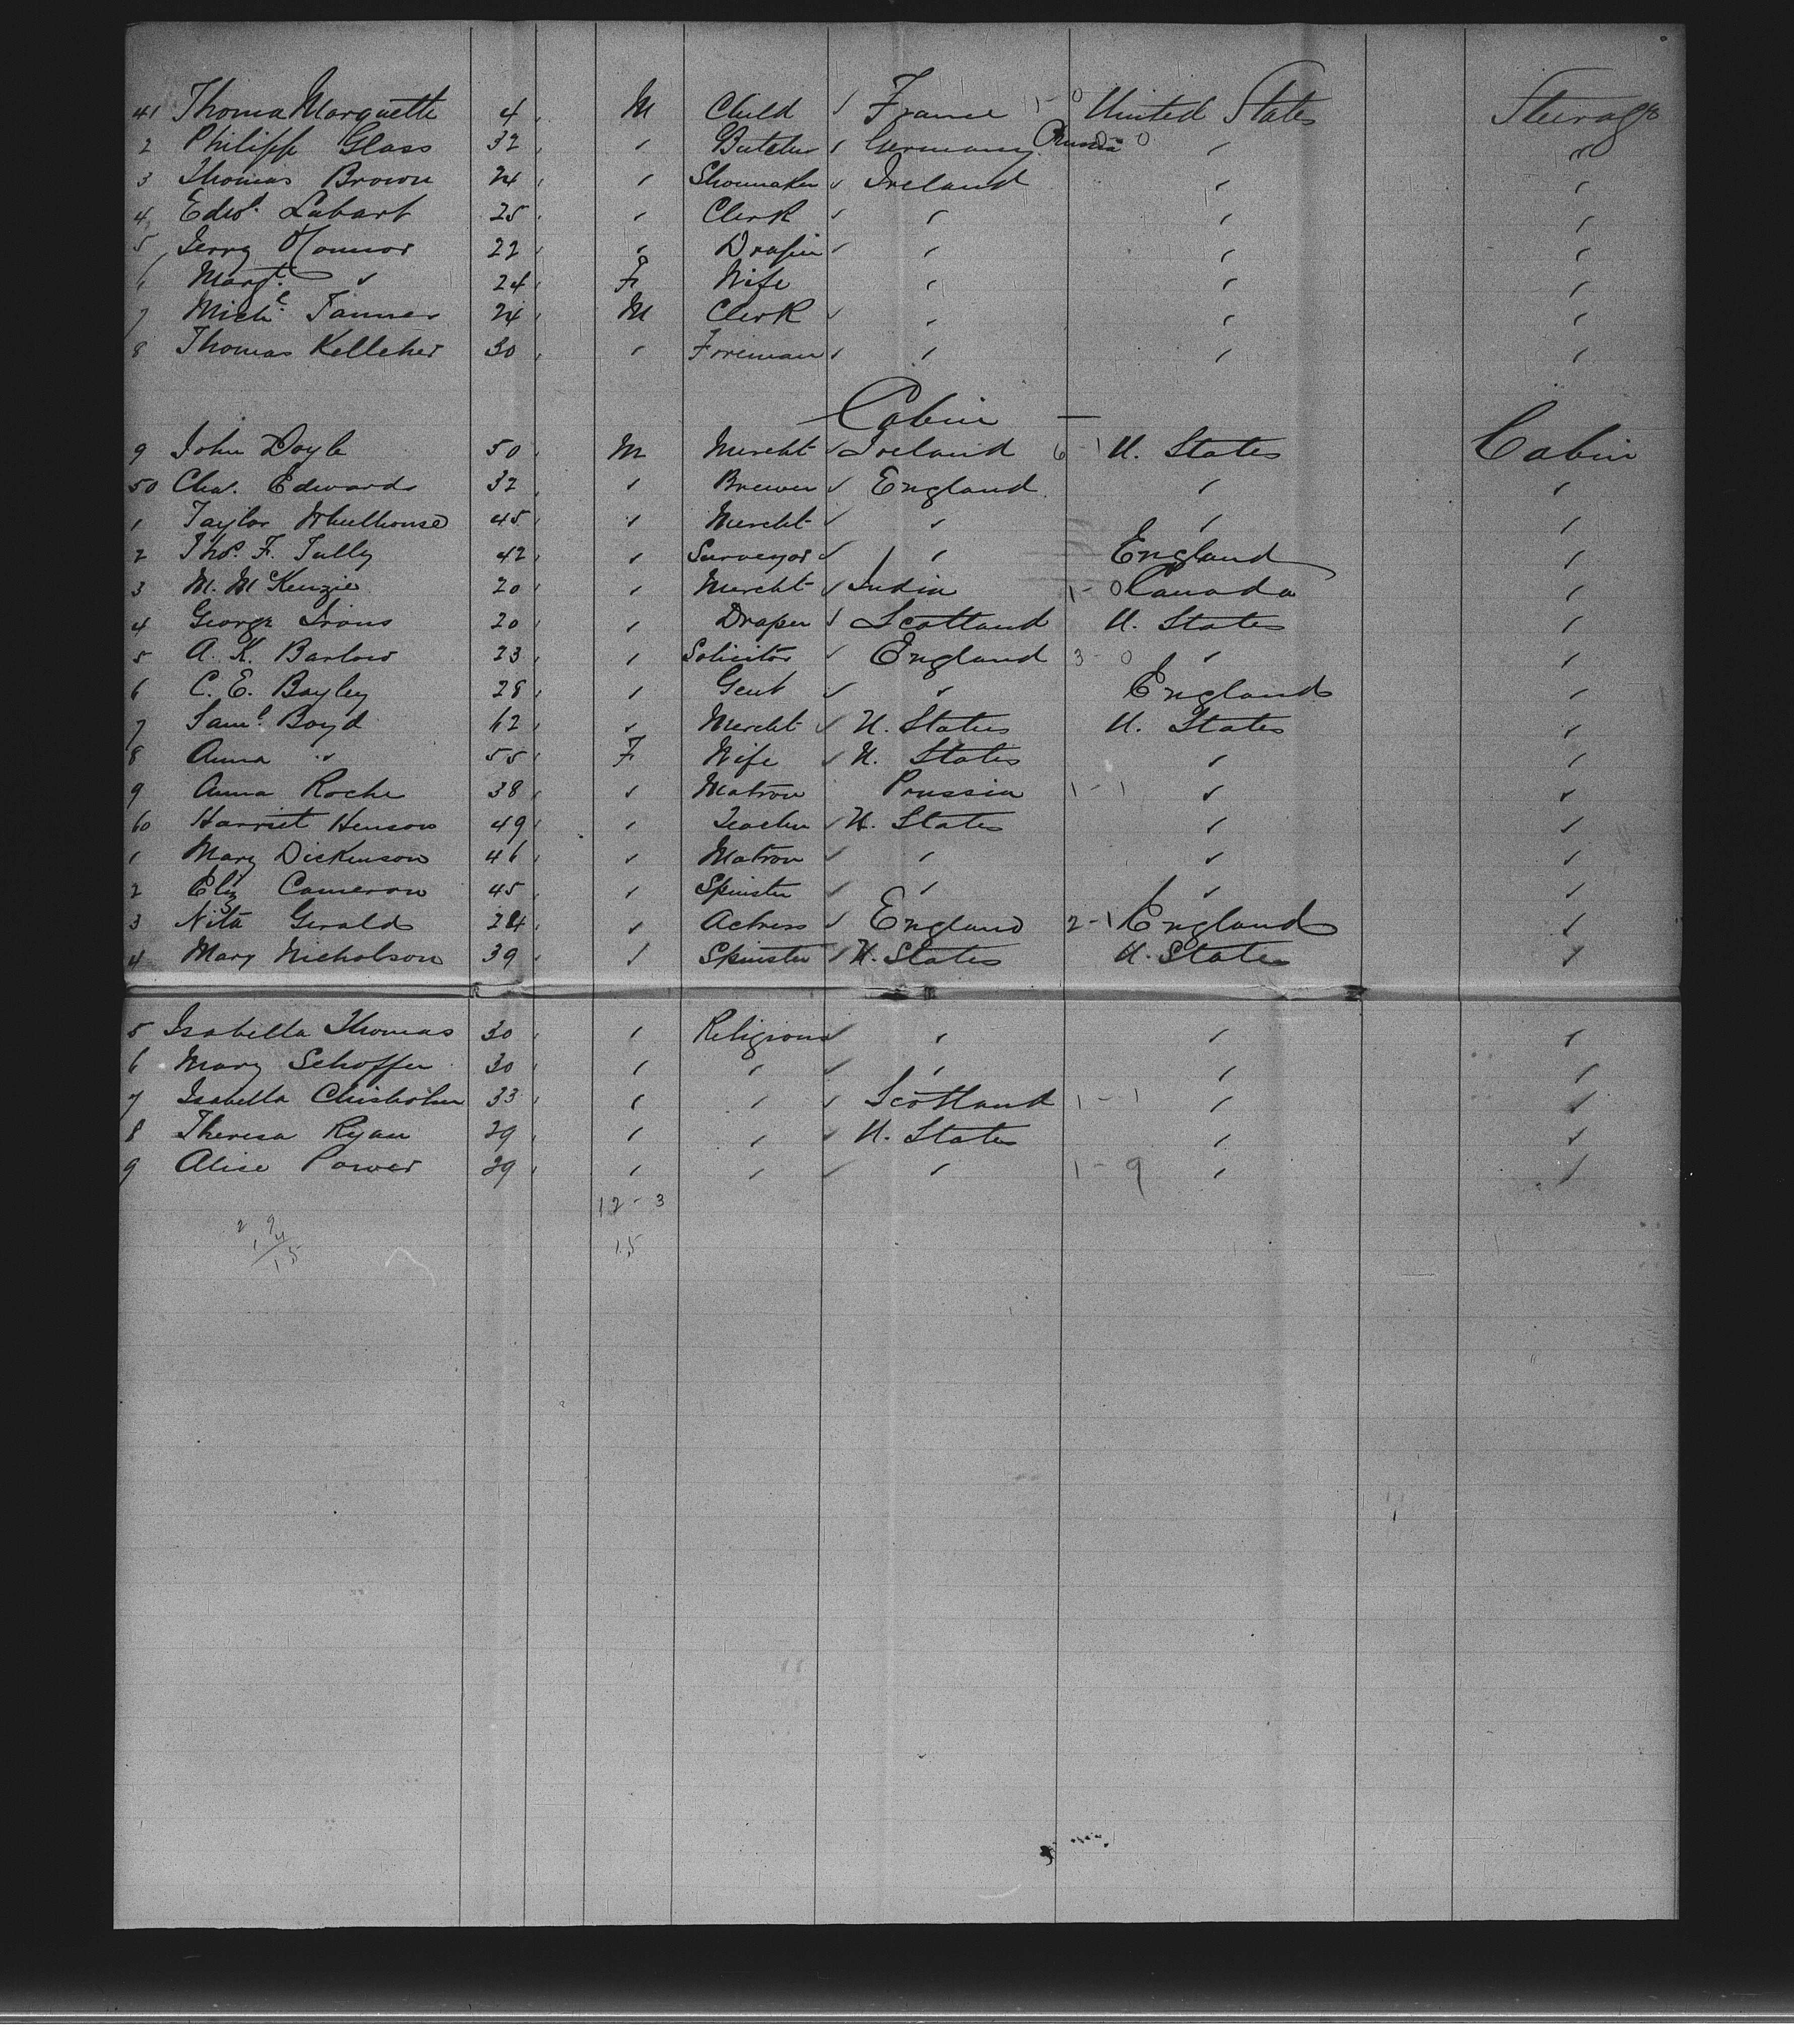 41 Thoma Marquette 4 " M Child ✓ France 1-0 United States Steerage
2 Philipp Glass 32 " " Butcher ✓ Germany Prussia 0 " "
3 Thomas Brown 24 " " Shoemaker ✓ Ireland " "
4 Edwd. Labart 25 " " Clerk ✓ " " "
5 Jerry O'Connor 22 " " Draper ✓ " " "
6 Margt. " 24 " F Wife " " "
7 Michl. Tanner 24 " M Clerk ✓ " " "
8 Thomas Kelleher 30 " " Foreman ✓ " " "
Cabin —
9 John Doyle 50 " M Mercht ✓ Ireland 6-1 U. States Cabin
50 Chas. Edwards 32 " " Brewer ✓ England " "
1 Taylor Wheelhouse 45 " " Mercht ✓ " " "
2 Thos. F. Tully 42 " " Surveyor ✓ " England "
3 M. McKenzie 20 " " Mercht ✓ India 1-0 Canada "
4 George Irons 20 " " Draper ✓ Scotland U. States "
5 A. K. Barlow 23 " " Solicitor ✓ England 3-0 " "
6 C. E. Bayley 28 " " Gent ✓ " England "
7 Saml. Boyd 62 " " Mercht ✓ U. States U. States "
8 Anna " 55 " F Wife ✓ U. States " "
9 Anna Roche 38 " " Matron Prussia 1-1 " "
60 Harriet Henson 49 " " Teacher ✓ U. States " "
1 Mary Dickenson 46 " " Matron ✓ " " "
2 Eliz Cameron 45 " " Spinster ✓ " " "
3 Nita Geralds 24 " " Actress ✓ England 2-1 England "
4 Mary Nicholson 39 " " Spinster ✓ U. States U. States "
5 Isabella Thomas 30 " " Religious ✓ " " "
6 Mary Schoffer 30 " " " ✓ " " "
7 Isabella Chisholm 33 " " " ✓ Scotland 1-1 " "
8 Theresa Ryan 29 " " " ✓ U. States " "
9 Alice Power 29 " " " ✓ " 1-9 " "
12-3
15